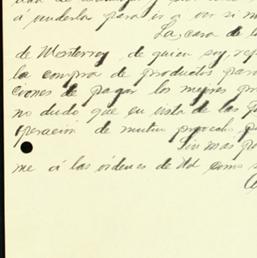 a venderla para ir a ver si
La casa de
de Monterrey, de quien soy
la compra de productos para
ciones de pagar los mejores
no dudo que en vista de las
operación de mutuo provecho
Sin mas
me á las ordenes de Ud como